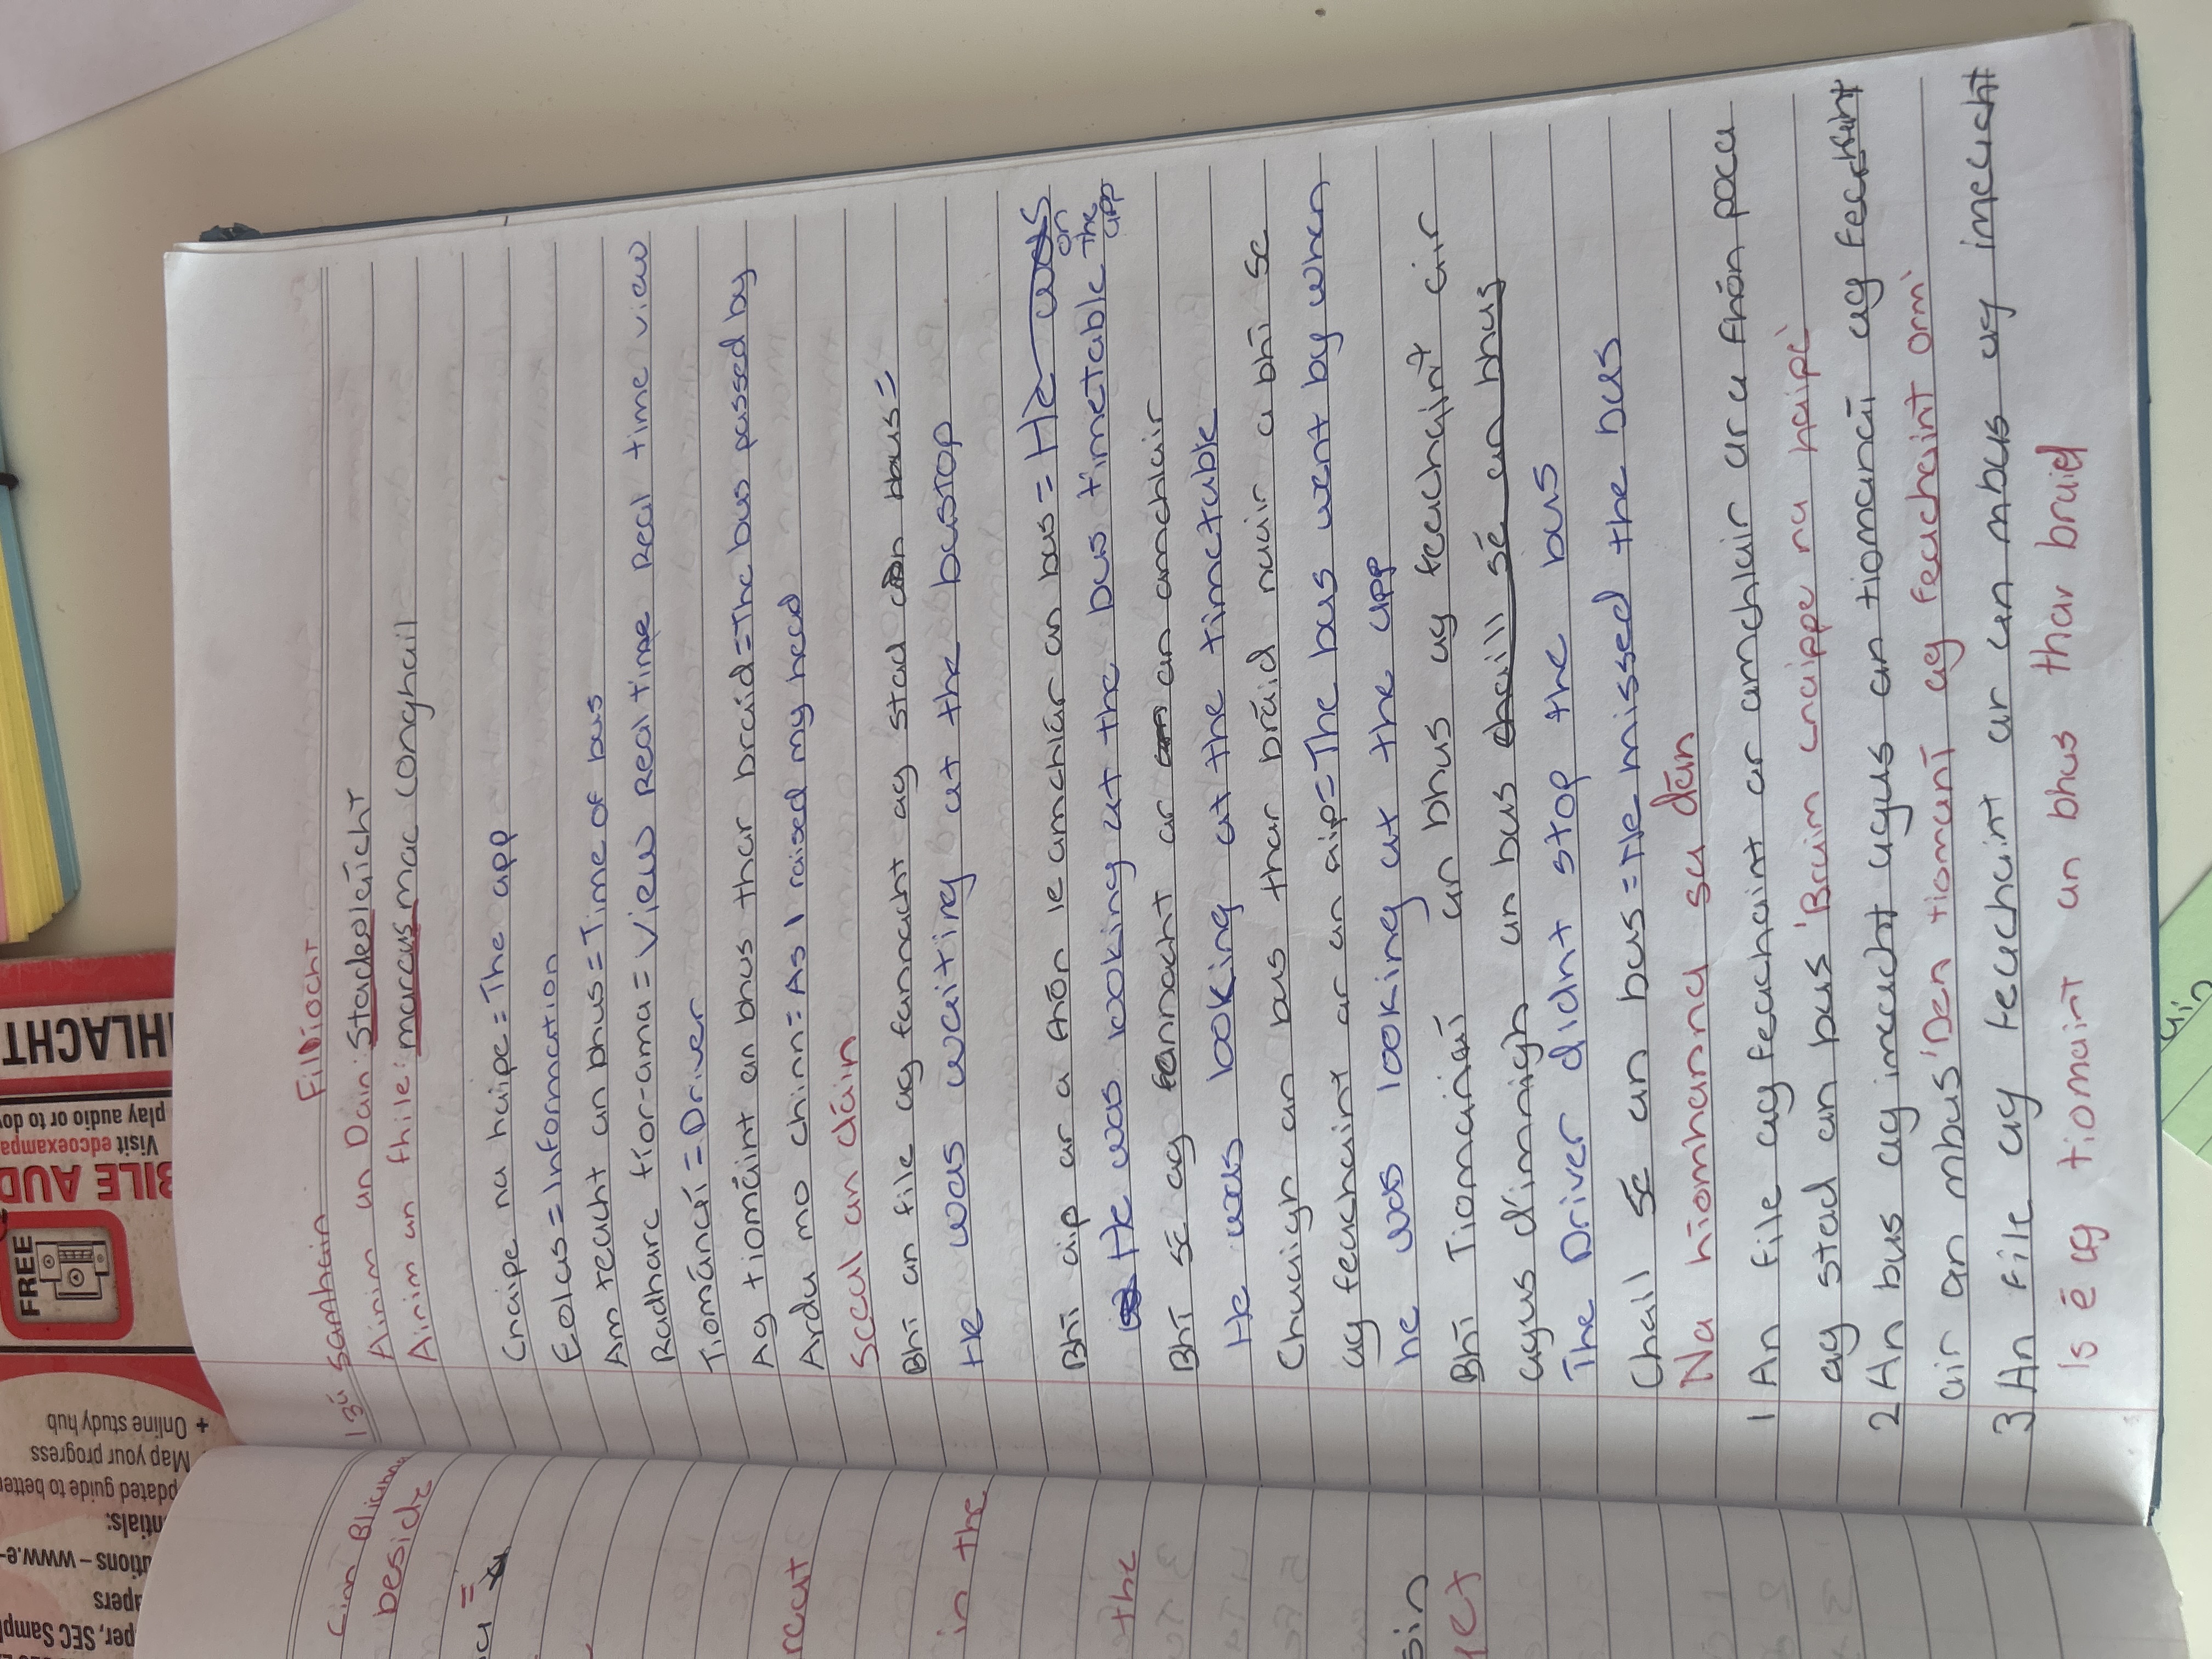 13ú Samhain Filíocht
Ainim an Dain: Stadeolaíocht
Ainim an fhile: marcus mac Conghail
Cnaipe na haipe = The app
Eolas = Information
Am teacht an bhus = Time of bus
Radharc fíor-ama = View Real time Real time view
Tiománaí = Driver
Ag tiomáint an bhus thar braid = The bus passed by
Ardu mo chinn = As I raised my head
Scéal an dáin
Bhí an file ag fannacht ag stad an bus =
He was waiting at the bustop
Bhí aip ar a fhón le amchlár an bus = He was
He was looking at the bus timetable on the app
Bhí sé ag fannacht ar an amchlair
He was looking at the timetable
Chuaigh an bus thar bráid nuair a bhí sé
ag feachaint ar an aip = The bus went by when
he was looking at the app
Bhí Tiomainaí an bhus ag feachaint air
agus d'imnigh an bus chaill sé an bhus
The Driver didnt stop the bus
Chaill sé an bus = He missed the bus
Na híomhanna sa dán
1 An file ag feachaint ar amchlair ar a fhón póca
ag stad an bus 'Bruim cnaippe na haipe'
2 An bus ag imeacht agus an tiomanaí ag feachaint
air an mbus 'Den tiomaní ag feachaint orm'
3 An file ag feachaint ar an mbus ag imeacht
Is é ag tiomaint an bhus thar braid
Cian Blianna
beside
=
react
in the
the
sin
FREE
BILE AUD
Visit edcoexampa
play audio or to do
HLACHT
+ Online study hub
Map your progress
pdated guide to better
ntials:
utions – www.e-
apers
per, SEC Sampl